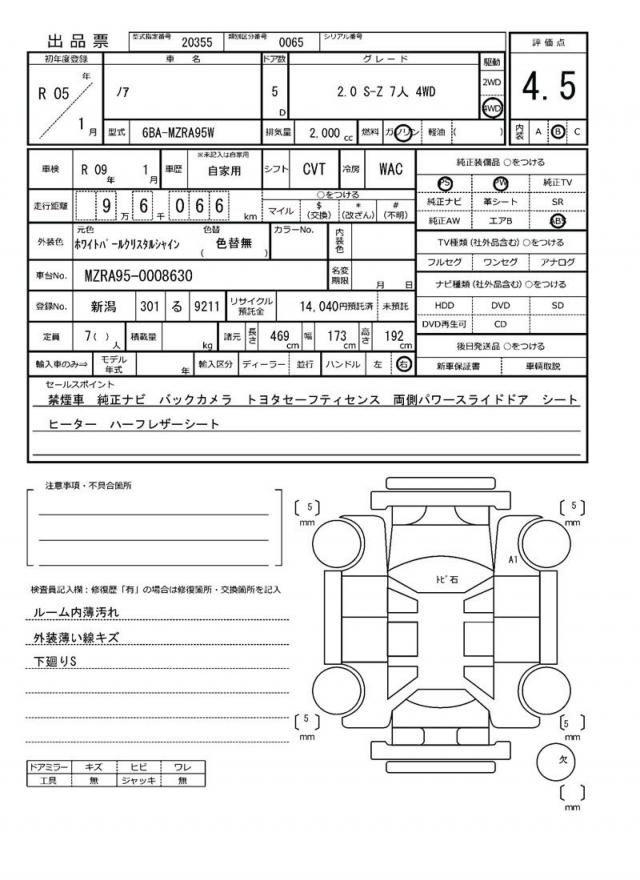 出品票 型式指定番号 20355 類別区分番号 0065 シリアル番号
初年度登録 車名 ドア数 グレード 駆動 評価点
R 05 年 1 月 ノア 5 D 2.0 S-Z 7人 4WD 2WD 4WD 4.5
型式 6BA-MZRA95W 排気量 2,000 cc 燃料 ガソリン 軽油 ( ) 内装 A B C
車検 R 09 年 1 月 車歴 ※未記入は自家用 自家用 シフト CVT 冷房 WAC 純正装備品 ○をつける
PS PW 純正TV
走行距離 9 万 6 千 0 6 6 km ○をつける マイル $ (交換) * (改ざん) # (不明) 純正ナビ 革シート SR
純正AW エアB ABS
外装色 元色 ホワイトパールクリスタルシャイン 色替 ( 色替無 ) カラーNo. 内装色 TV種類 (社外品含む) ○をつける
フルセグ ワンセグ アナログ
車台No. MZRA95-0008630 名変期限 月 日 ナビ種類 (社外品含む) ○をつける
登録No. 新潟 301 る 9211 リサイクル預託金 14,040円預託済 未預託 HDD DVD SD
DVD再生可 CD
定員 7( )人 積載量 kg 諸元 長さ 469 cm 幅 173 cm 高さ 192 cm 後日発送品 ○をつける
輸入車のみ⇒ モデル年式 年 輸入区分 ディーラー 並行 ハンドル 左 右 新車保証書 車輌取説
セールスポイント
禁煙車 純正ナビ バックカメラ トヨタセーフティセンス 両側パワースライドドア シート
ヒーター ハーフレザーシート
注意事項・不具合箇所
検査員記入欄：修復歴「有」の場合は修復箇所・交換箇所を記入
ルーム内薄汚れ
外装薄い線キズ
下廻りS
ドアミラー キズ ヒビ ワレ
工具 無 ジャッキ 無
[ 5 ] mm
[ 5 ] mm
A1
トビ石
[ 5 ] mm
[ 5 ] mm
欠
[ ] mm